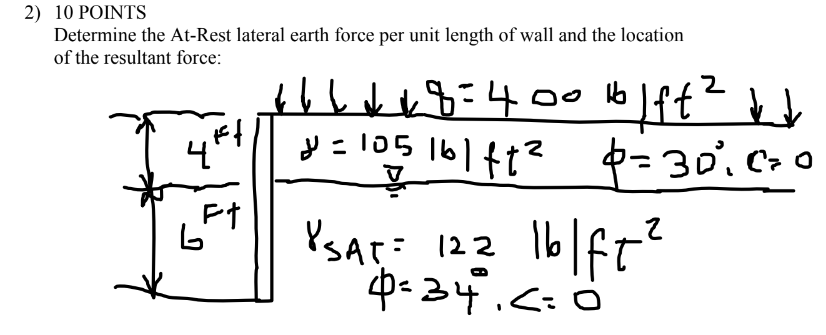 2) 10 POINTS
Determine the At-Rest lateral earth force per unit length of wall and the location
of the resultant force:
q = 400 lb/ft²
4 Ft
γ = 105 lb/ft² φ = 30°, C = 0
6 Ft
γSAT = 122 lb/ft²
φ = 34°, C = 0